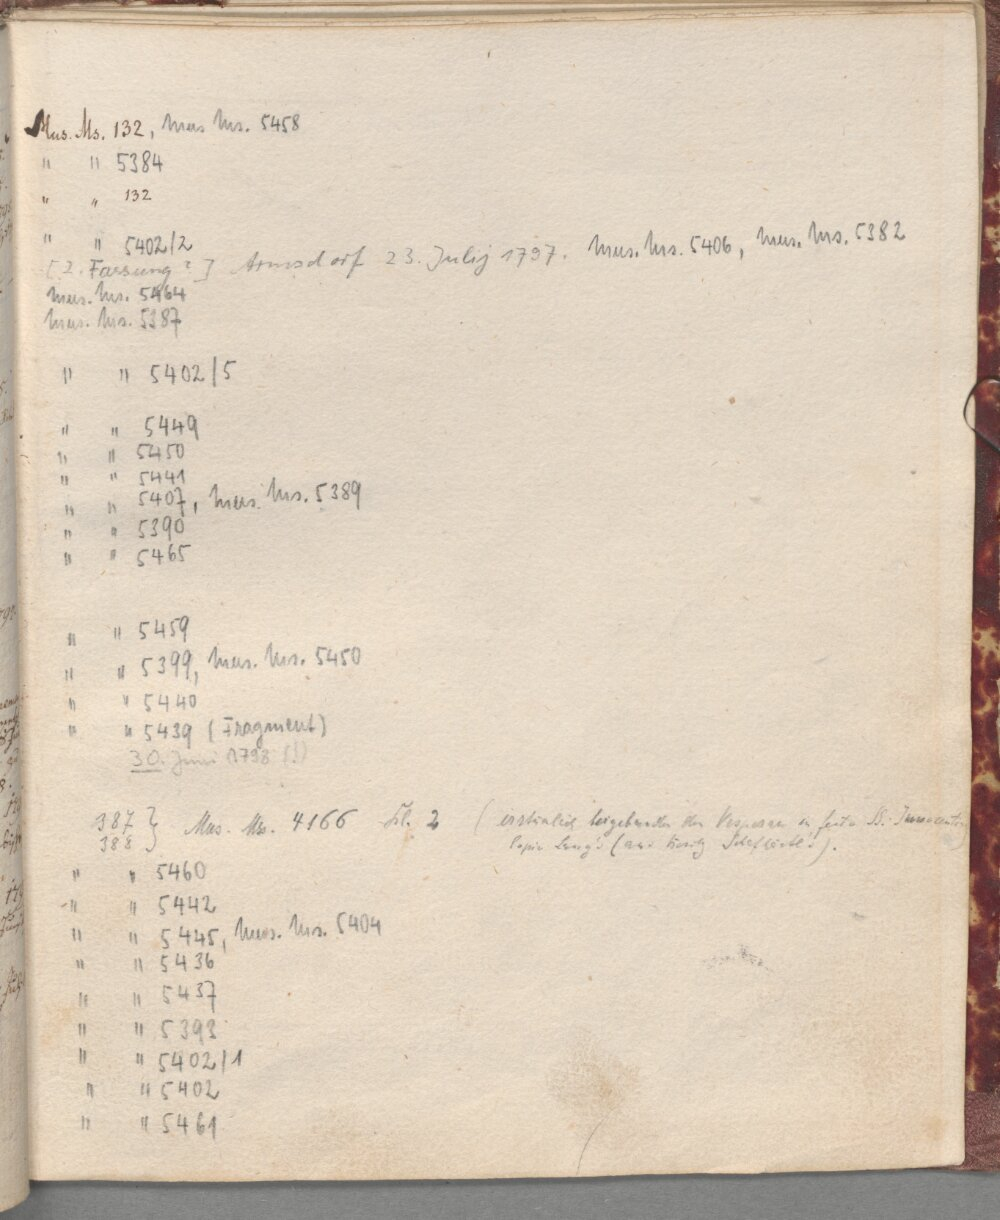 Mus. Ms. 132, Mus. Ms. 5458
" " 5384
" " 132
" " 5402/2
[2. Fassung?] Armsdorf 23. Julij 1797. Mus. Ms. 5406, Mus. Ms. 5382
Mus. Ms. 5464
Mus. Ms. 5387
" " 5402/5
" " 5449
" " 5450
" " 5441
" " 5407, Mus. Ms. 5389
" " 5390
" " 5465
" " 5459
" " 5399, Mus. Ms. 5450
" " 5440
" " 5439 (Fragment)
30. Juni 1798 (!)
387 } Mus. Ms. 4166 Fl. 2 (
388
" " 5460
" " 5442
" " 5445, Mus. Ms. 5404
" " 5436
" " 5437
" " 5393
" " 5402/1
" " 5402
" " 5461